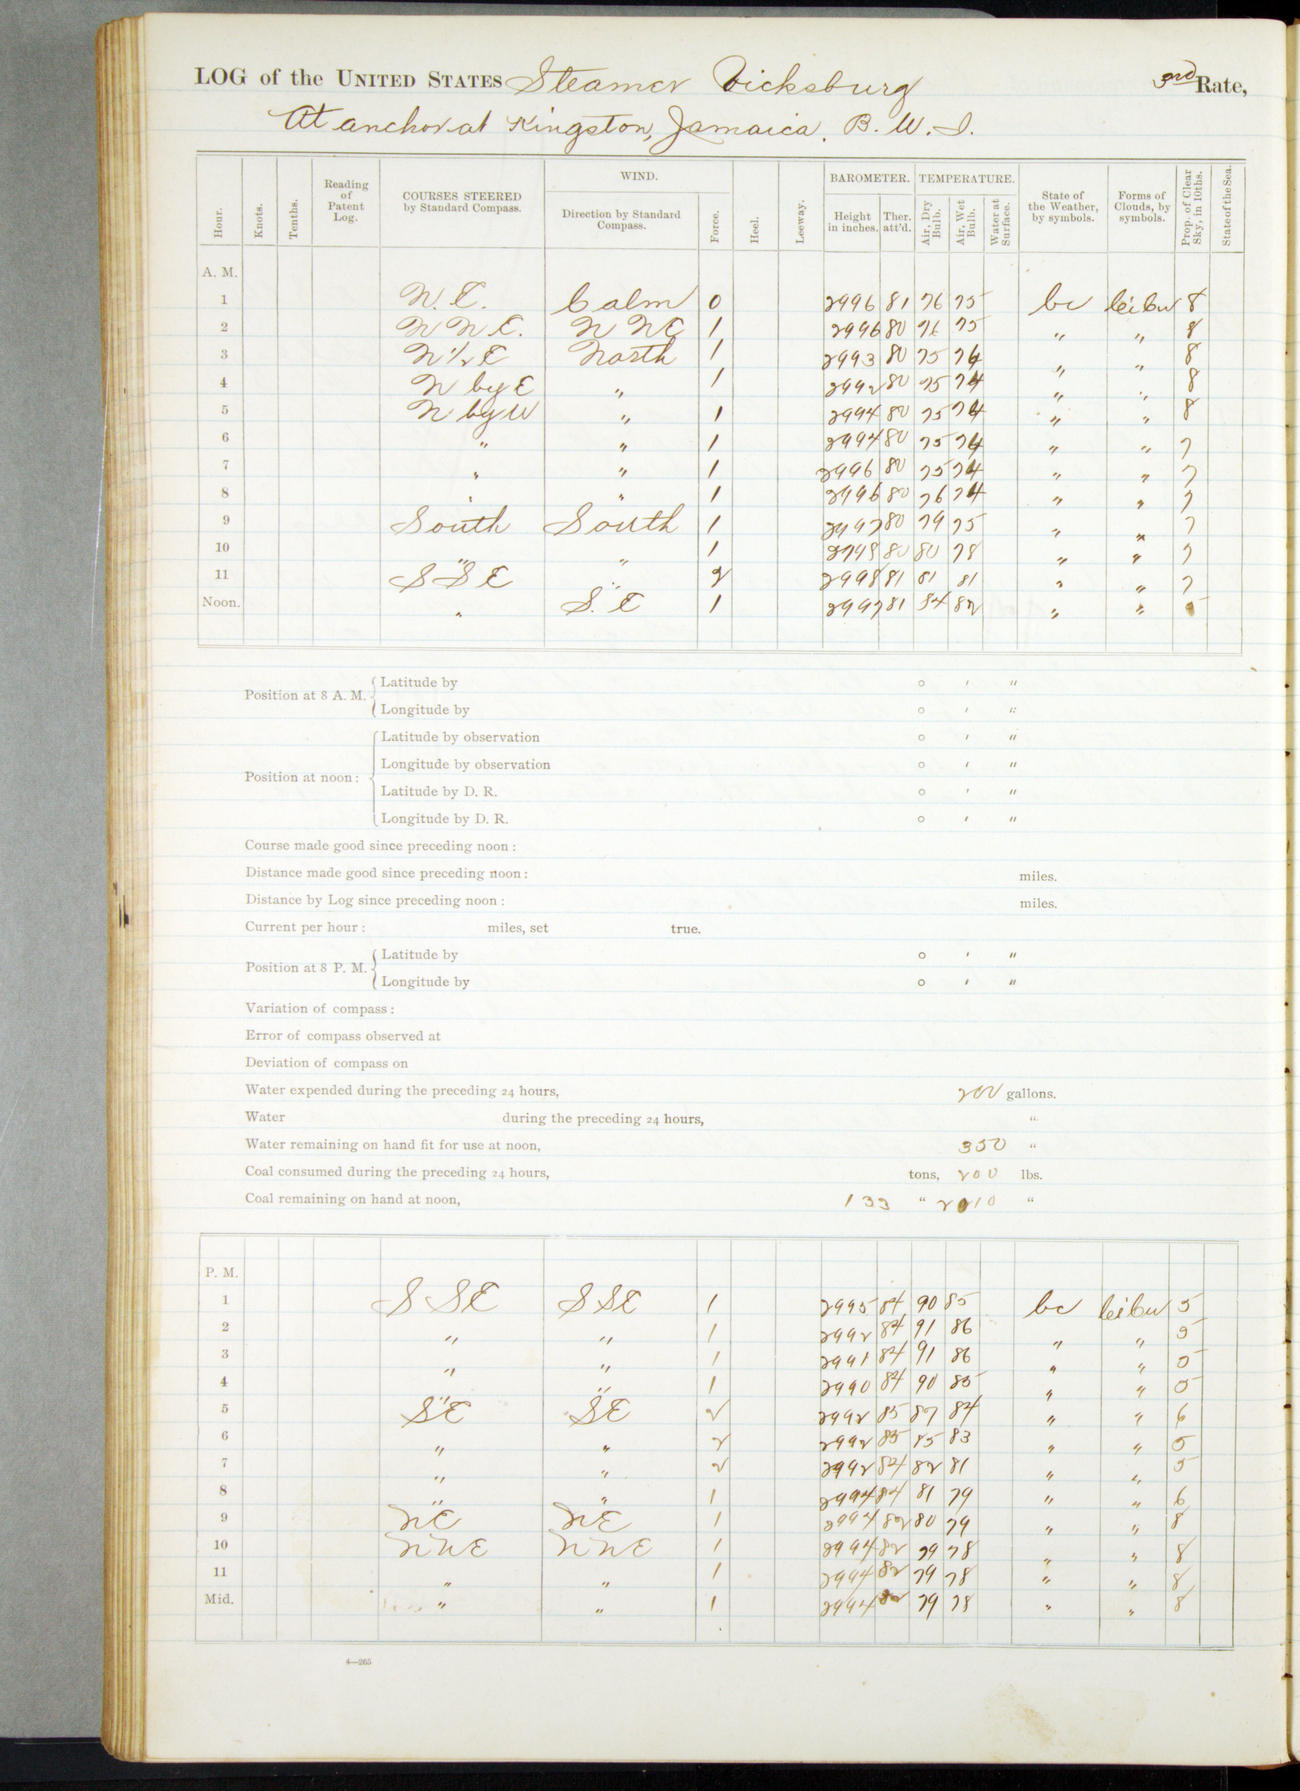 LOG of the UNITED STATES Steamer Vicksburg 3rd Rate,
At anchor at Kingston, Jamaica. B. W. I.
Hour. Knots. Tenths. Reading of Patent Log. COURSES STEERED by Standard Compass. WIND. Direction by Standard Compass. Force. Heel. Leeway. BAROMETER. Height in inches. Ther. att'd. TEMPERATURE. Air, Dry Bulb. Air, Wet Bulb. Water at Surface. State of the Weather, by symbols. Forms of Clouds, by symbols. Prop. of Clear Sky, in 10ths. State of the Sea.
A. M.
1 N. E. Calm 0 2996 81 76 75 bc ci cu 8
2 N N E. N NE 1 2996 80 76 75 " " 8
3 N ½ E North 1 2993 80 75 74 " " 8
4 N by E " 1 2992 80 75 74 " " 8
5 N by W " 1 2994 80 75 74 " " 8
6 " " 1 2994 80 75 74 " " 7
7 " " 1 2996 80 75 74 " " 7
8 " " 1 2996 80 76 74 " " 7
9 South South 1 2997 80 79 75 " " 7
10 " " 1 2998 80 80 78 " " 7
11 S S E " 2 2998 81 81 81 " " 7
Noon. " S. E 1 2997 81 84 82 " " 5
Position at 8 A. M. Latitude by ° ' "
Longitude by ° ' "
Position at noon: Latitude by observation ° ' "
Longitude by observation ° ' "
Latitude by D. R. ° ' "
Longitude by D. R. ° ' "
Course made good since preceding noon:
Distance made good since preceding noon: miles.
Distance by Log since preceding noon: miles.
Current per hour: miles, set true.
Position at 8 P. M. Latitude by ° ' "
Longitude by ° ' "
Variation of compass:
Error of compass observed at
Deviation of compass on
Water expended during the preceding 24 hours, 200 gallons.
Water during the preceding 24 hours, "
Water remaining on hand fit for use at noon, 350 "
Coal consumed during the preceding 24 hours, tons, 200 lbs.
Coal remaining on hand at noon, 133 " 2010 "
P. M.
1 S SE S SE 1 2995 84 90 85 bc ci cu 5
2 " " 1 2992 84 91 86 " " 5
3 " " 1 2991 84 91 86 " " 5
4 " " 1 2990 84 90 85 " " 5
5 SE SE 2 2992 85 87 84 " " 6
6 " " 2 2992 85 85 83 " " 5
7 " " 2 2992 84 82 81 " " 5
8 " " 1 2994 84 81 79 " " 6
9 NE NE 1 2994 82 80 79 " " 8
10 NNE NNE 1 2994 82 79 78 " " 8
11 " " 1 2994 82 79 78 " " 8
Mid. " " 1 2994 82 79 78 " " 8
4—265